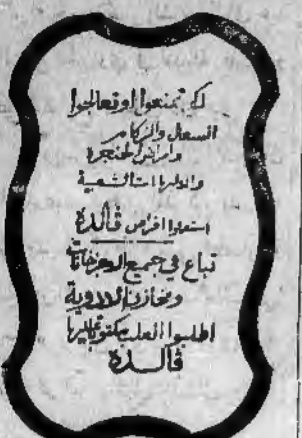 لكي تمنعوا او تعالجوا
السعال والزكام
وامراض الحنجرة
والولهابات الشعبية
استعملوا اقراص ڤالدة
تباع في جميع الاجزاخانات
ومخازن الادوية
اطلبوا العلب مكتوب عليها
ڤالدة